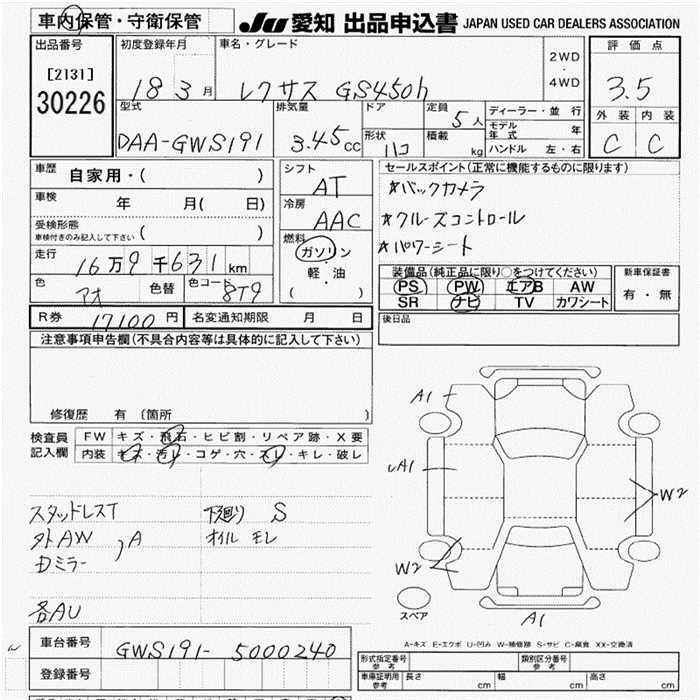 車内保管・守衛保管
JU 愛知 出品申込書 JAPAN USED CAR DEALERS ASSOCIATION
出品番号
[2131]
30226
初度登録年月
18 3 月
車名・グレード
レクサス GS450h
2WD
・
4WD
評価点
3.5
外装 内装
C C
型式
DAA-GWS191
排気量
3.45 cc
ドア
形状 ハコ
定員 5 人
積載 kg
ディーラー・並行
モデル年式 年
ハンドル 左・右
車歴 自家用・( )
車検 年 月( 日)
受検形態
車検付きのみ記入して下さい ( )
走行 16万9千631 km
色 アオ 色替 色コード 8T9
シフト
AT
冷房
AAC
燃料
ガソリン
軽・油
( )
セールスポイント(正常に機能するものに限ります)
☆バックカメラ
☆クルーズコントロール
☆パワーシート
装備品(純正品に限り○をつけてください)
PS PW エアB AW
SR ナビ TV カワシート
新車保証書
有・無
R券 17100 円 名変通知期限 月 日
後日品
注意事項申告欄(不具合内容等は具体的に記入して下さい)
修復歴 有〔箇所 〕
検査員記入欄
FW キズ・飛石・ヒビ割・リペア跡・X要
内装 キズ・汚レ・コゲ・穴・スレ・キレ・破レ
スタッドレスT
外AW
Dミラー
, A
各AU
下廻り S
オイル モレ
A1
A1
W2
W2
A1
スペア
A-キズ E-エクボ U-凹み W-補修跡 S-サビ C-腐食 XX-交換済
車台番号 GWS191-5000240
登録番号
形式指定番号 参考
類別区分番号 参考
車庫証明用 参考 長さ cm 幅 cm 高さ cm